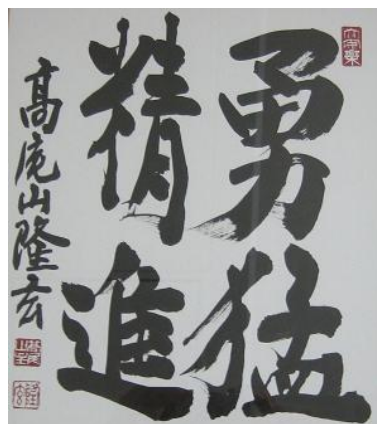 勇猛
精進
高庵山隆玄